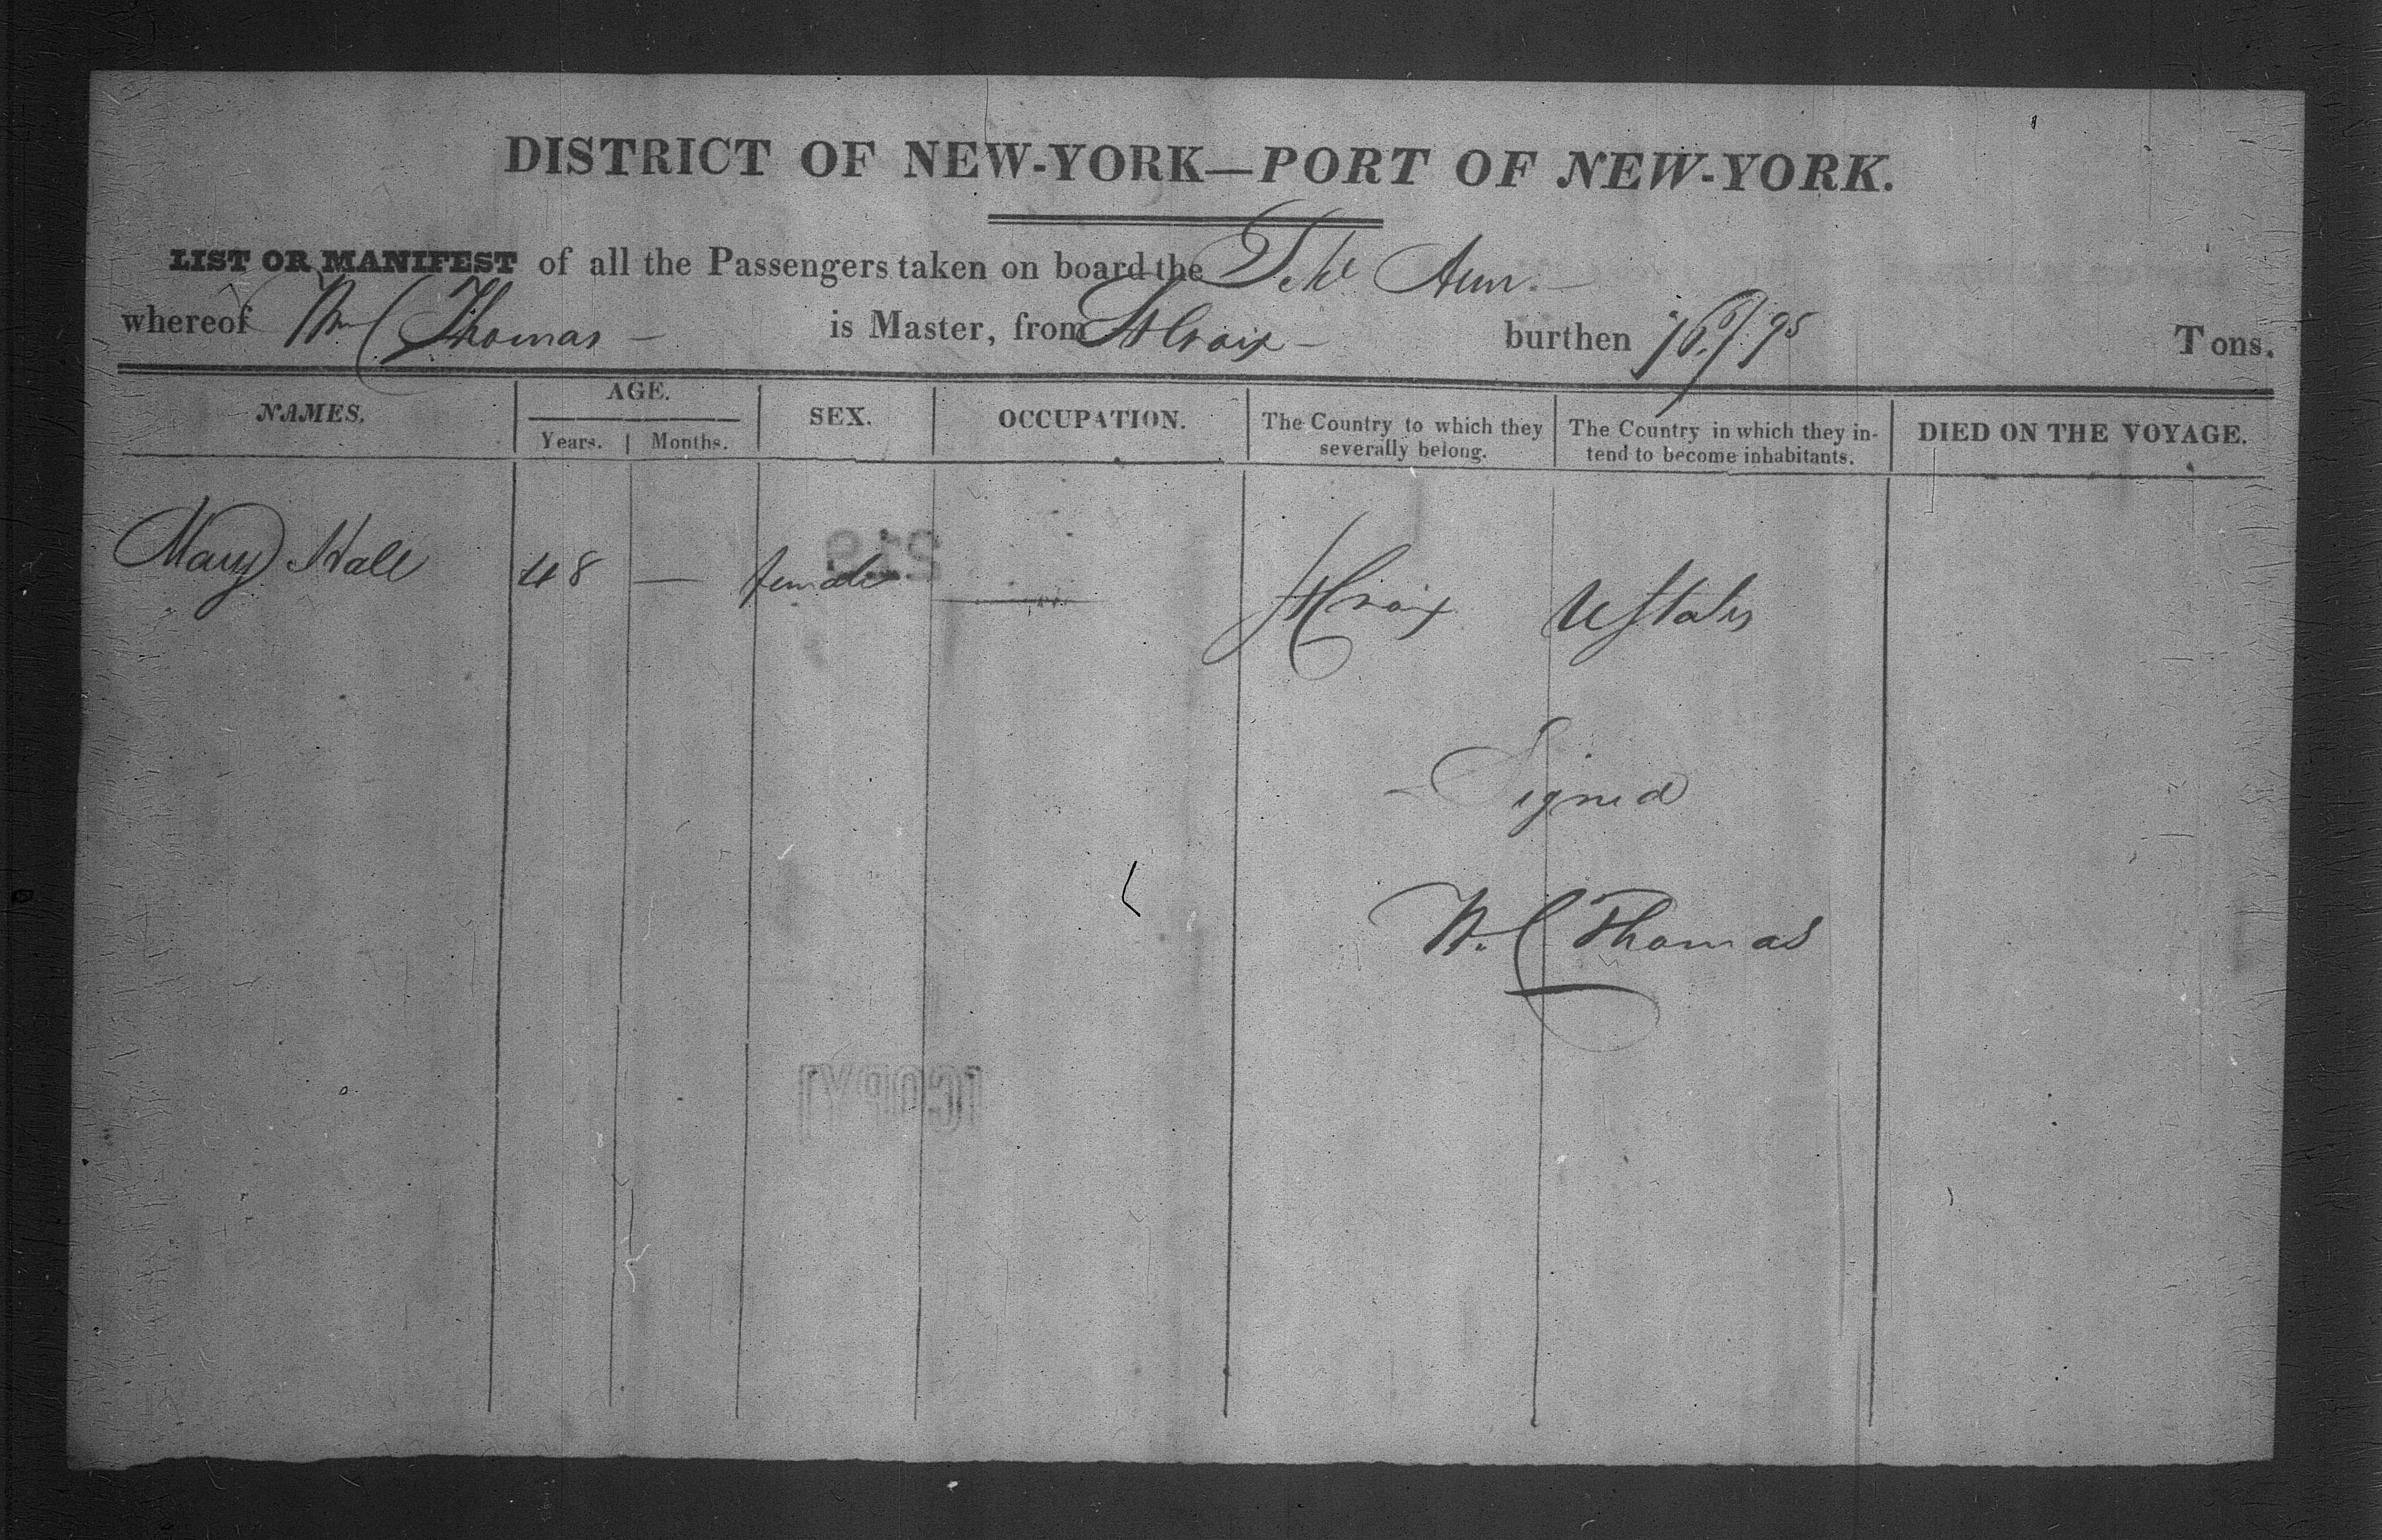 DISTRICT OF NEW-YORK—PORT OF NEW-YORK.
LIST OR MANIFEST of all the Passengers taken on board the Schr Ann.
whereof Wm C Thomas is Master, from St Croix burthen 76/95 Tons.
NAMES. AGE. SEX. OCCUPATION. The Country to which they severally belong. The Country in which they intend to become inhabitants. DIED ON THE VOYAGE.
Years. Months.
Mary Hall 48 — female — St Croix UStates
Signed
W. C Thomas